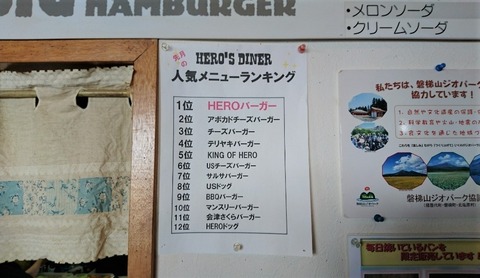 HAMBURGER
・メロンソーダ
・クリームソーダ
先月の
HERO'S DINER
人気メニューランキング
1位 HEROバーガー
2位 アボカドチーズバーガー
3位 チーズバーガー
4位 テリヤキバーガー
5位 KING OF HERO
6位 USチーズバーガー
7位 サルサバーガー
8位 USドッグ
9位 BBQバーガー
10位 マンスリーバーガー
11位 会津さくらバーガー
12位 HEROドッグ
私たちは、磐梯山ジオパーク
協力しています！
磐梯山ジオパーク協議
毎日焼いているパンを
限定販売しています